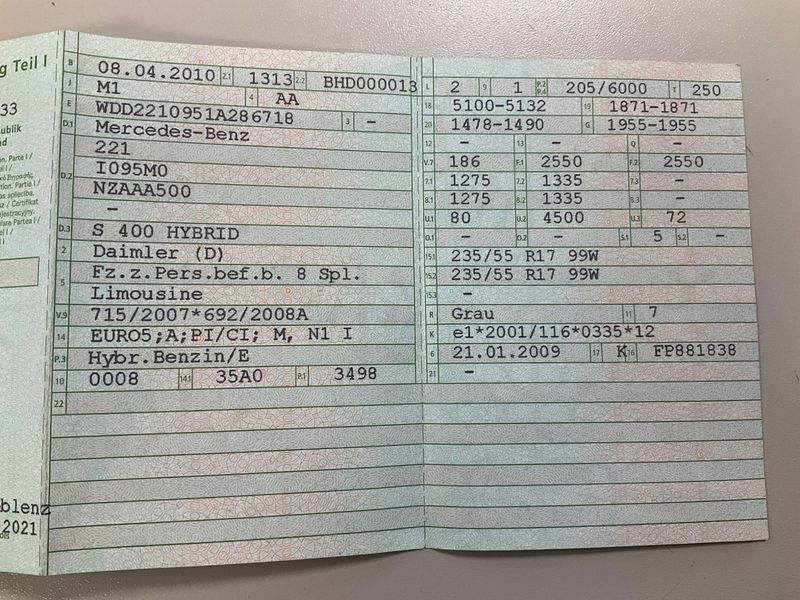 g Teil I
33
ublik
d
Parte I /
Parte I /
as apliecība.
sz / Certifikat
ejestracyjny.
ulare Partea I /
blenz
2021
B 08.04.2010 2.1 1313 2.2 BHD000013
J M1 4 AA
E WDD2210951A286718 3 –
D.1 Mercedes-Benz
221
D.2 I095M0
NZAAA500
–
D.3 S 400 HYBRID
2 Daimler (D)
5 Fz.z.Pers.bef.b. 8 Spl.
Limousine
V.9 715/2007*692/2008A
14 EURO5;A;PI/CI; M, N1 I
P.3 Hybr.Benzin/E
10 0008 14.1 35A0 P.1 3498
22
L 2 9 1 P.2 P.4 205/6000 T 250
18 5100-5132 19 1871-1871
20 1478-1490 G 1955-1955
12 – 13 – Q –
V.7 186 F.1 2550 F.2 2550
7.1 1275 7.2 1335 7.3 –
8.1 1275 8.2 1335 8.3 –
U.1 80 U.2 4500 U.3 72
O.1 – O.2 – S.1 5 S.2 –
15.1 235/55 R17 99W
15.2 235/55 R17 99W
15.3 –
R Grau 11 7
K e1*2001/116*0335*12
6 21.01.2009 17 K 16 FP881838
21 –